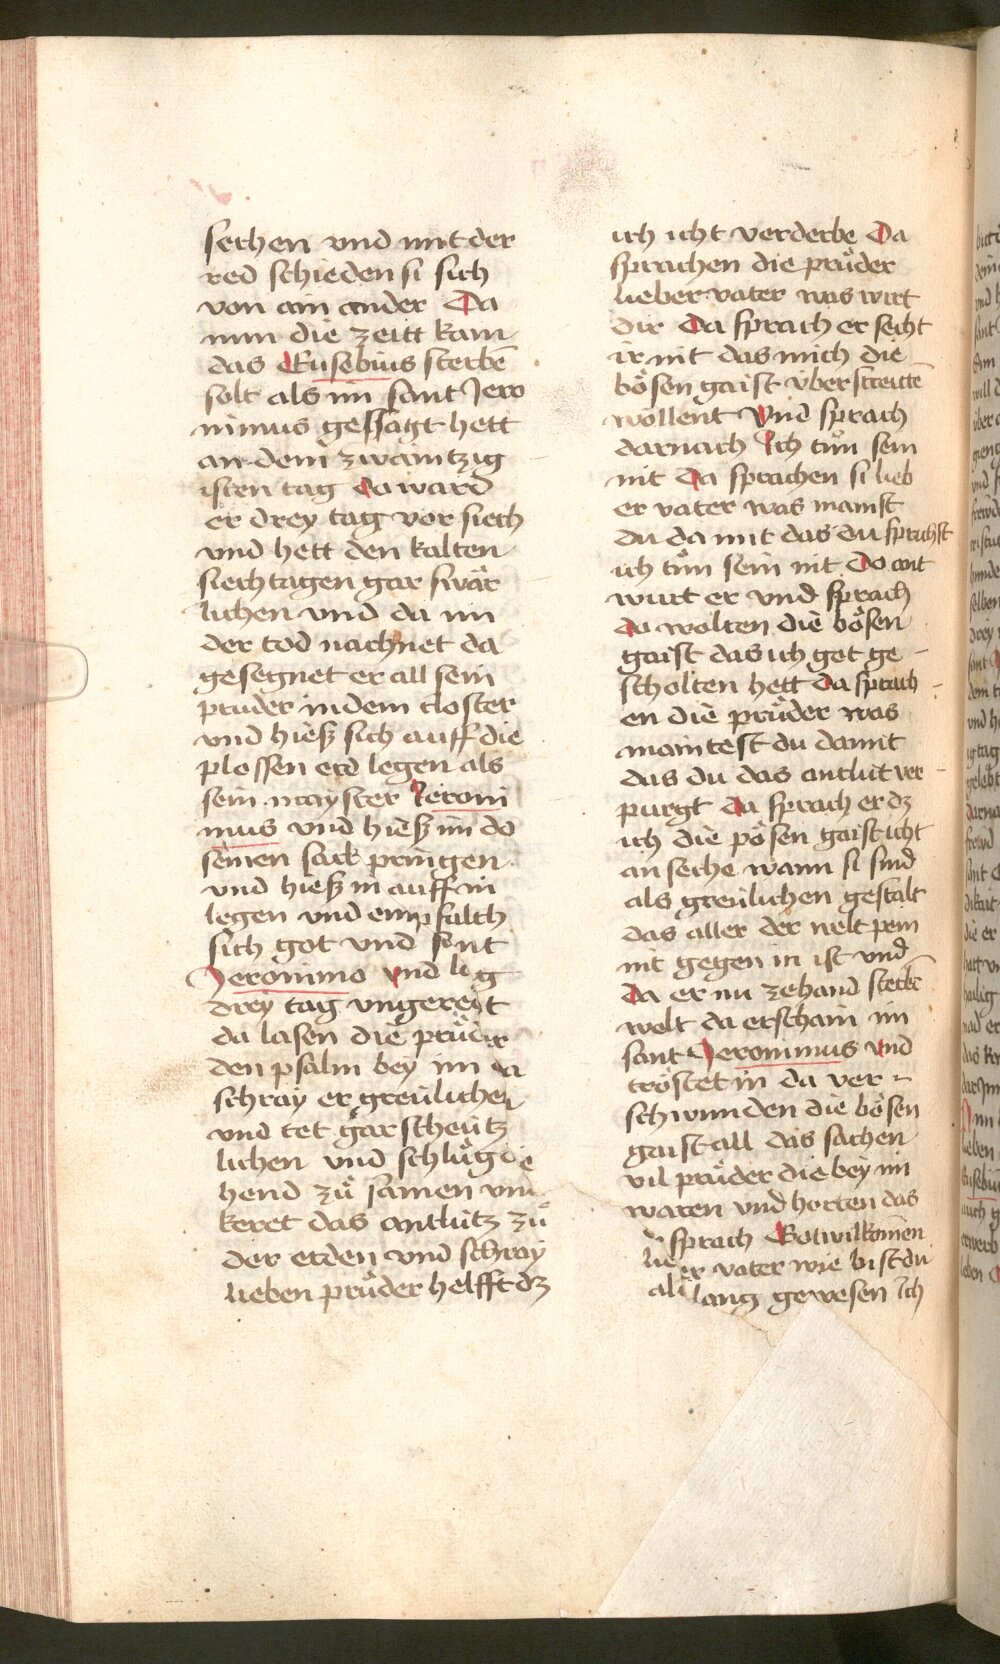 sechen vnd mit der
red schieden si sich
von ain ander Da
nun die zeitt kam
das Eusebius sterbē
solt als im sant Jero
nimus gessagt hett
an dem zwaintzig
isten tag Da ward
er drey tag vor siech
vnd hett den kalten
siechtagen gar swär
lichen vnd da im
der tod nachnet da
gesegnet er all sein
prüder in dem closter
vnd hieß sich auff die
plossen erd legen als
sein mayster Jeroni
mus vnd hieß im do
seinen sack pringen
vnd hieß in auff in
legen vnd empfalch
sich got vnd sant
Jeronimo vnd lag
drey tag vngereit
da lasen die prüder
den psalm bey im da
schray er greülichen
vnd tet gar scheütz
lichen vnd schlüg die
hend zů samen vnd
keret das antlütz zů
der erden vnd schray
lieben prüder helfft dz
ich icht verderbe Da
sprachen die prüder
lieber vater was wirt
dir Da sprach er secht
ir nit das mich die
bösen gaist über streittē
wöllent Vnd sprach
darnach Ich tůn sein
nit Da sprachen si lieb
er vater was mainst
du da mit das du sprichst
ich tůn sein nit Do ant
wurt er vnd sprach
da wolten die bösen
gaist das ich got ge
scholten hett Da sprach
en die prüder was
maintest du damit
das du das antlüt ver
purgt Da sprach er dz
ich die pösen gaist icht
an seche wann si sind
als greülichen gestalt
das aller der welt pein
nit gegen in ist vnd
Da er nu zehand sterbē
wolt da erschain im
sant Jeronimus vnd
tröstet in da ver
schwunden die bösen
gaist all das sachen
vil prüder die bey im
waren vnd horten das
sprach Gotwilkomen
lieber vater wie bist du
als lang gewesen Ich